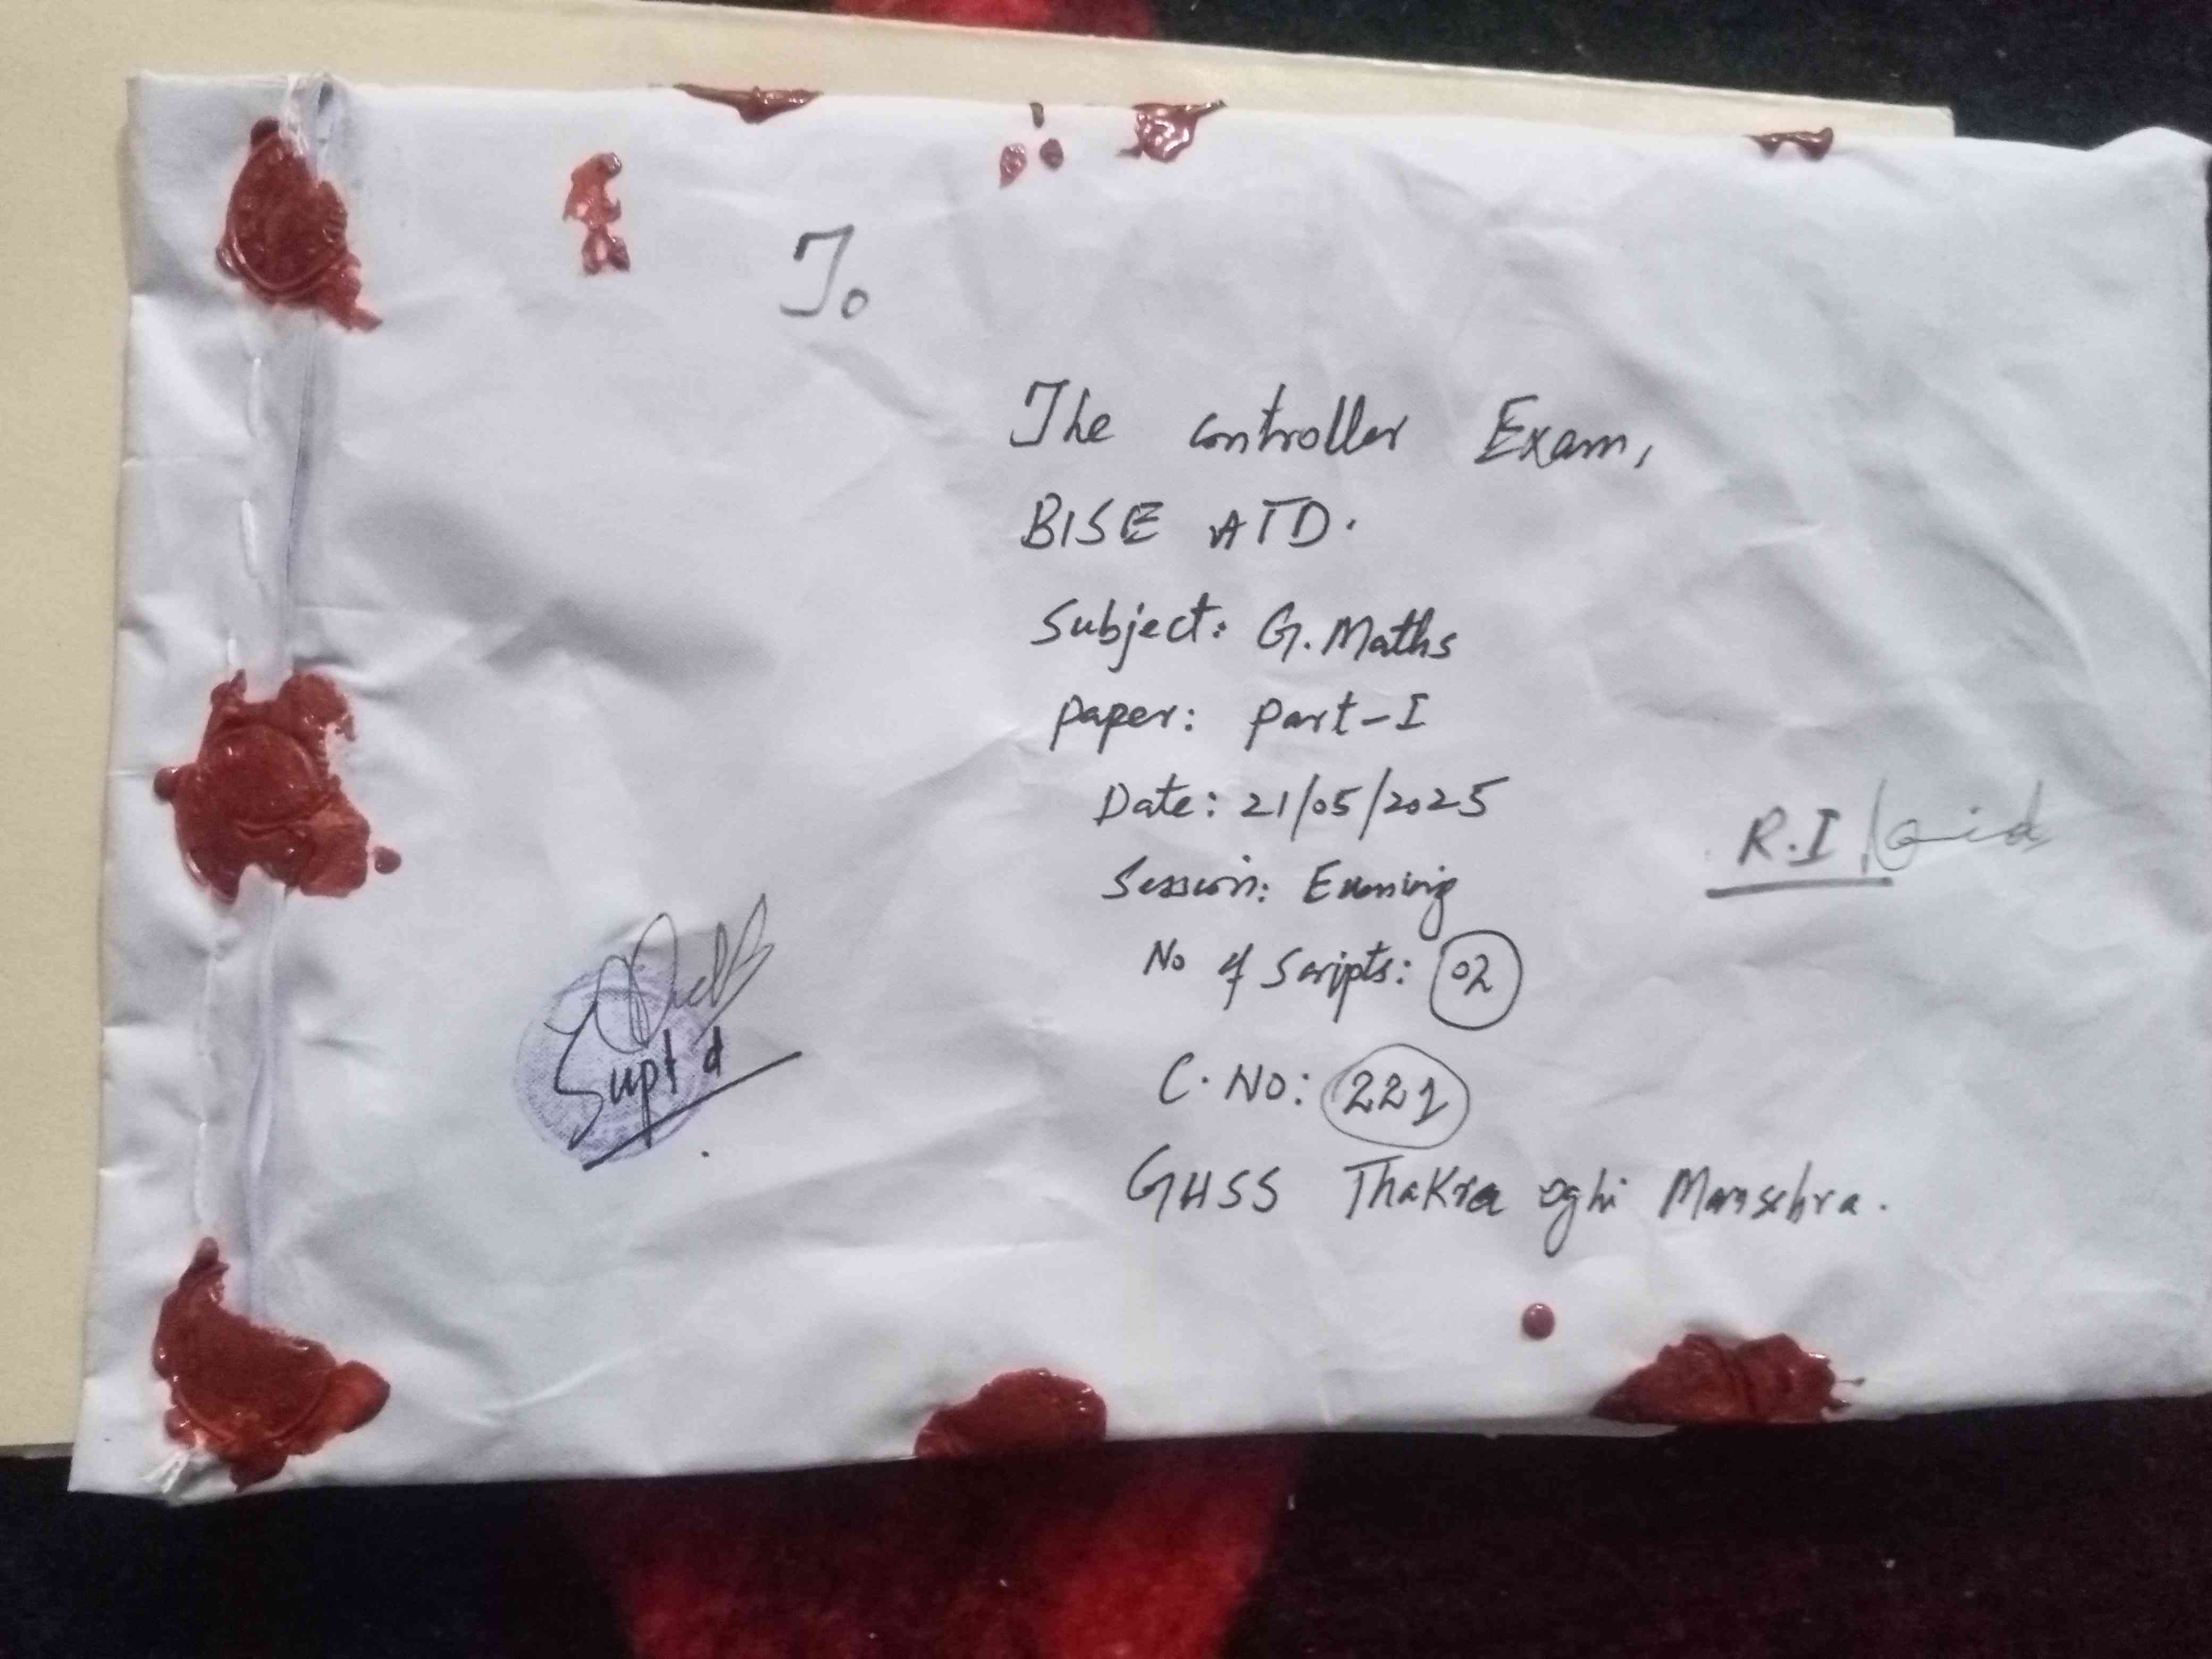 To
The controller Exam,
BISE ATD.
Subject: G. Maths
Paper: Part-I
Date: 21/05/2025
Session: Evening
No of Scripts: 02
C. No: 221
GHSS Thakra oghi Mansehra.
R.I
Suptd